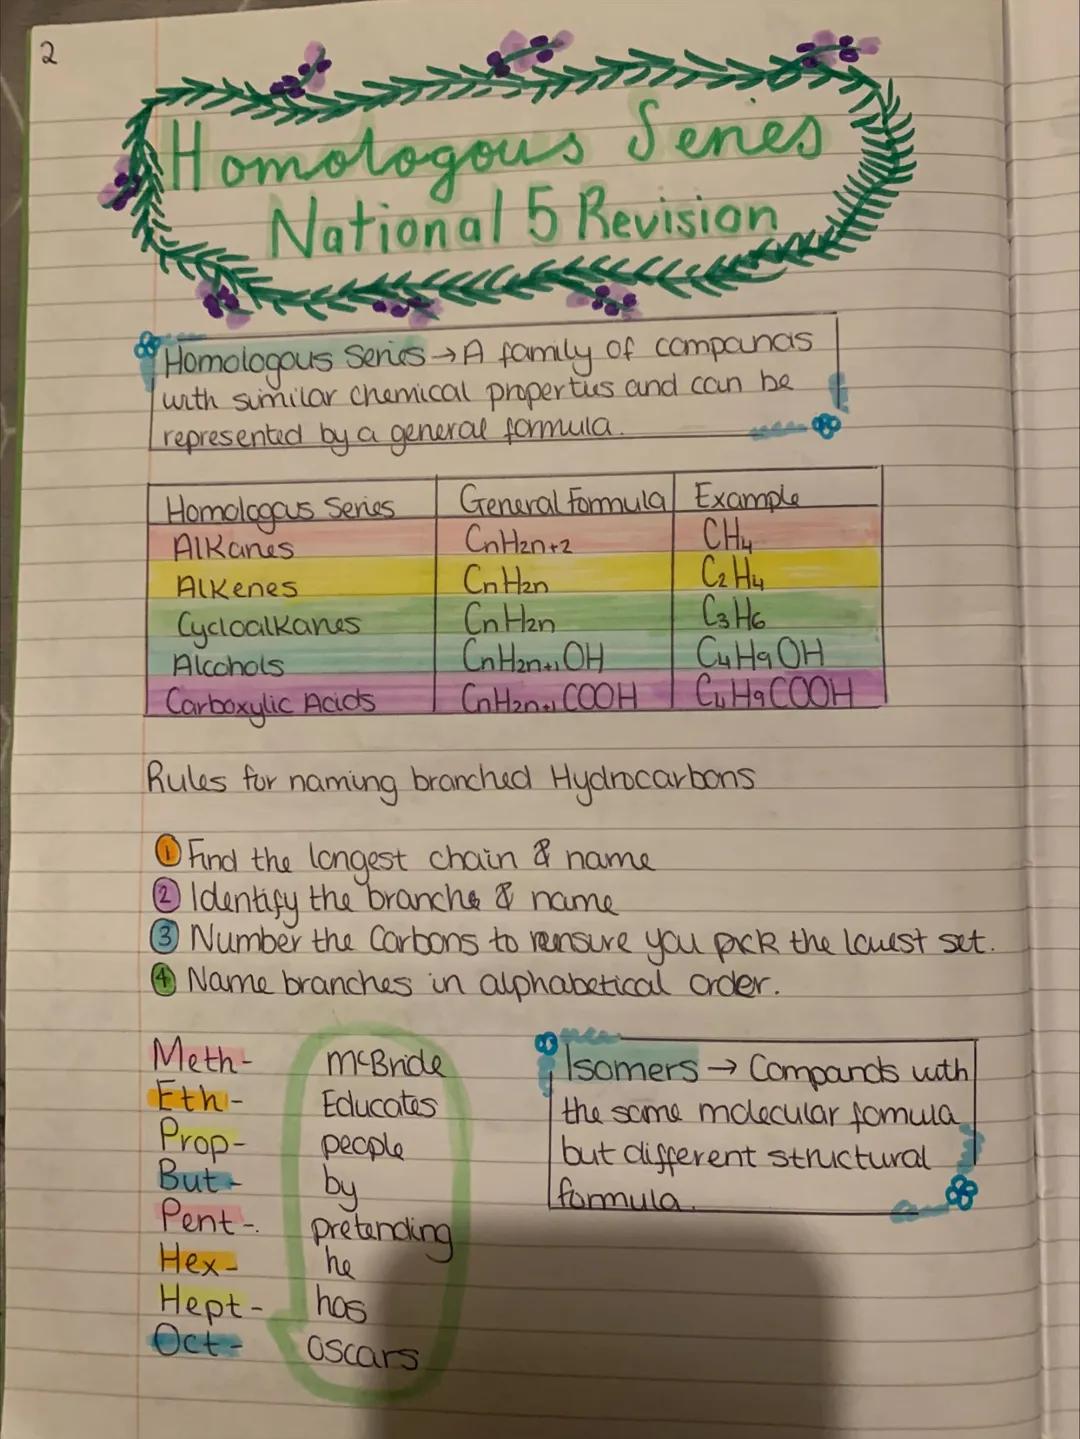 2
Homologous Series
National 5 Revision
Homologous Series → A family of compounds
with similar chemical properties and can be
represented by a general formula.
Homologous Series General Formula Example
Alkanes CnH2n+2 CH4
Alkenes CnH2n C2H4
Cycloalkanes CnH2n C3H6
Alcohols CnH2n+1OH C4H9OH
Carboxylic Acids CnH2n+1COOH C4H9COOH
Rules for naming branched Hydrocarbons
1 Find the longest chain & name
2 Identify the branche & name
3 Number the Carbons to rensure you pick the lowest set.
4 Name branches in alphabetical order.
Meth- McBride
Eth- Educates
Prop- people
But- by
Pent-. pretending
Hex- he
Hept- has
Oct- oscars
Isomers → Compands with
the same molecular fomula
but different structural
formula.